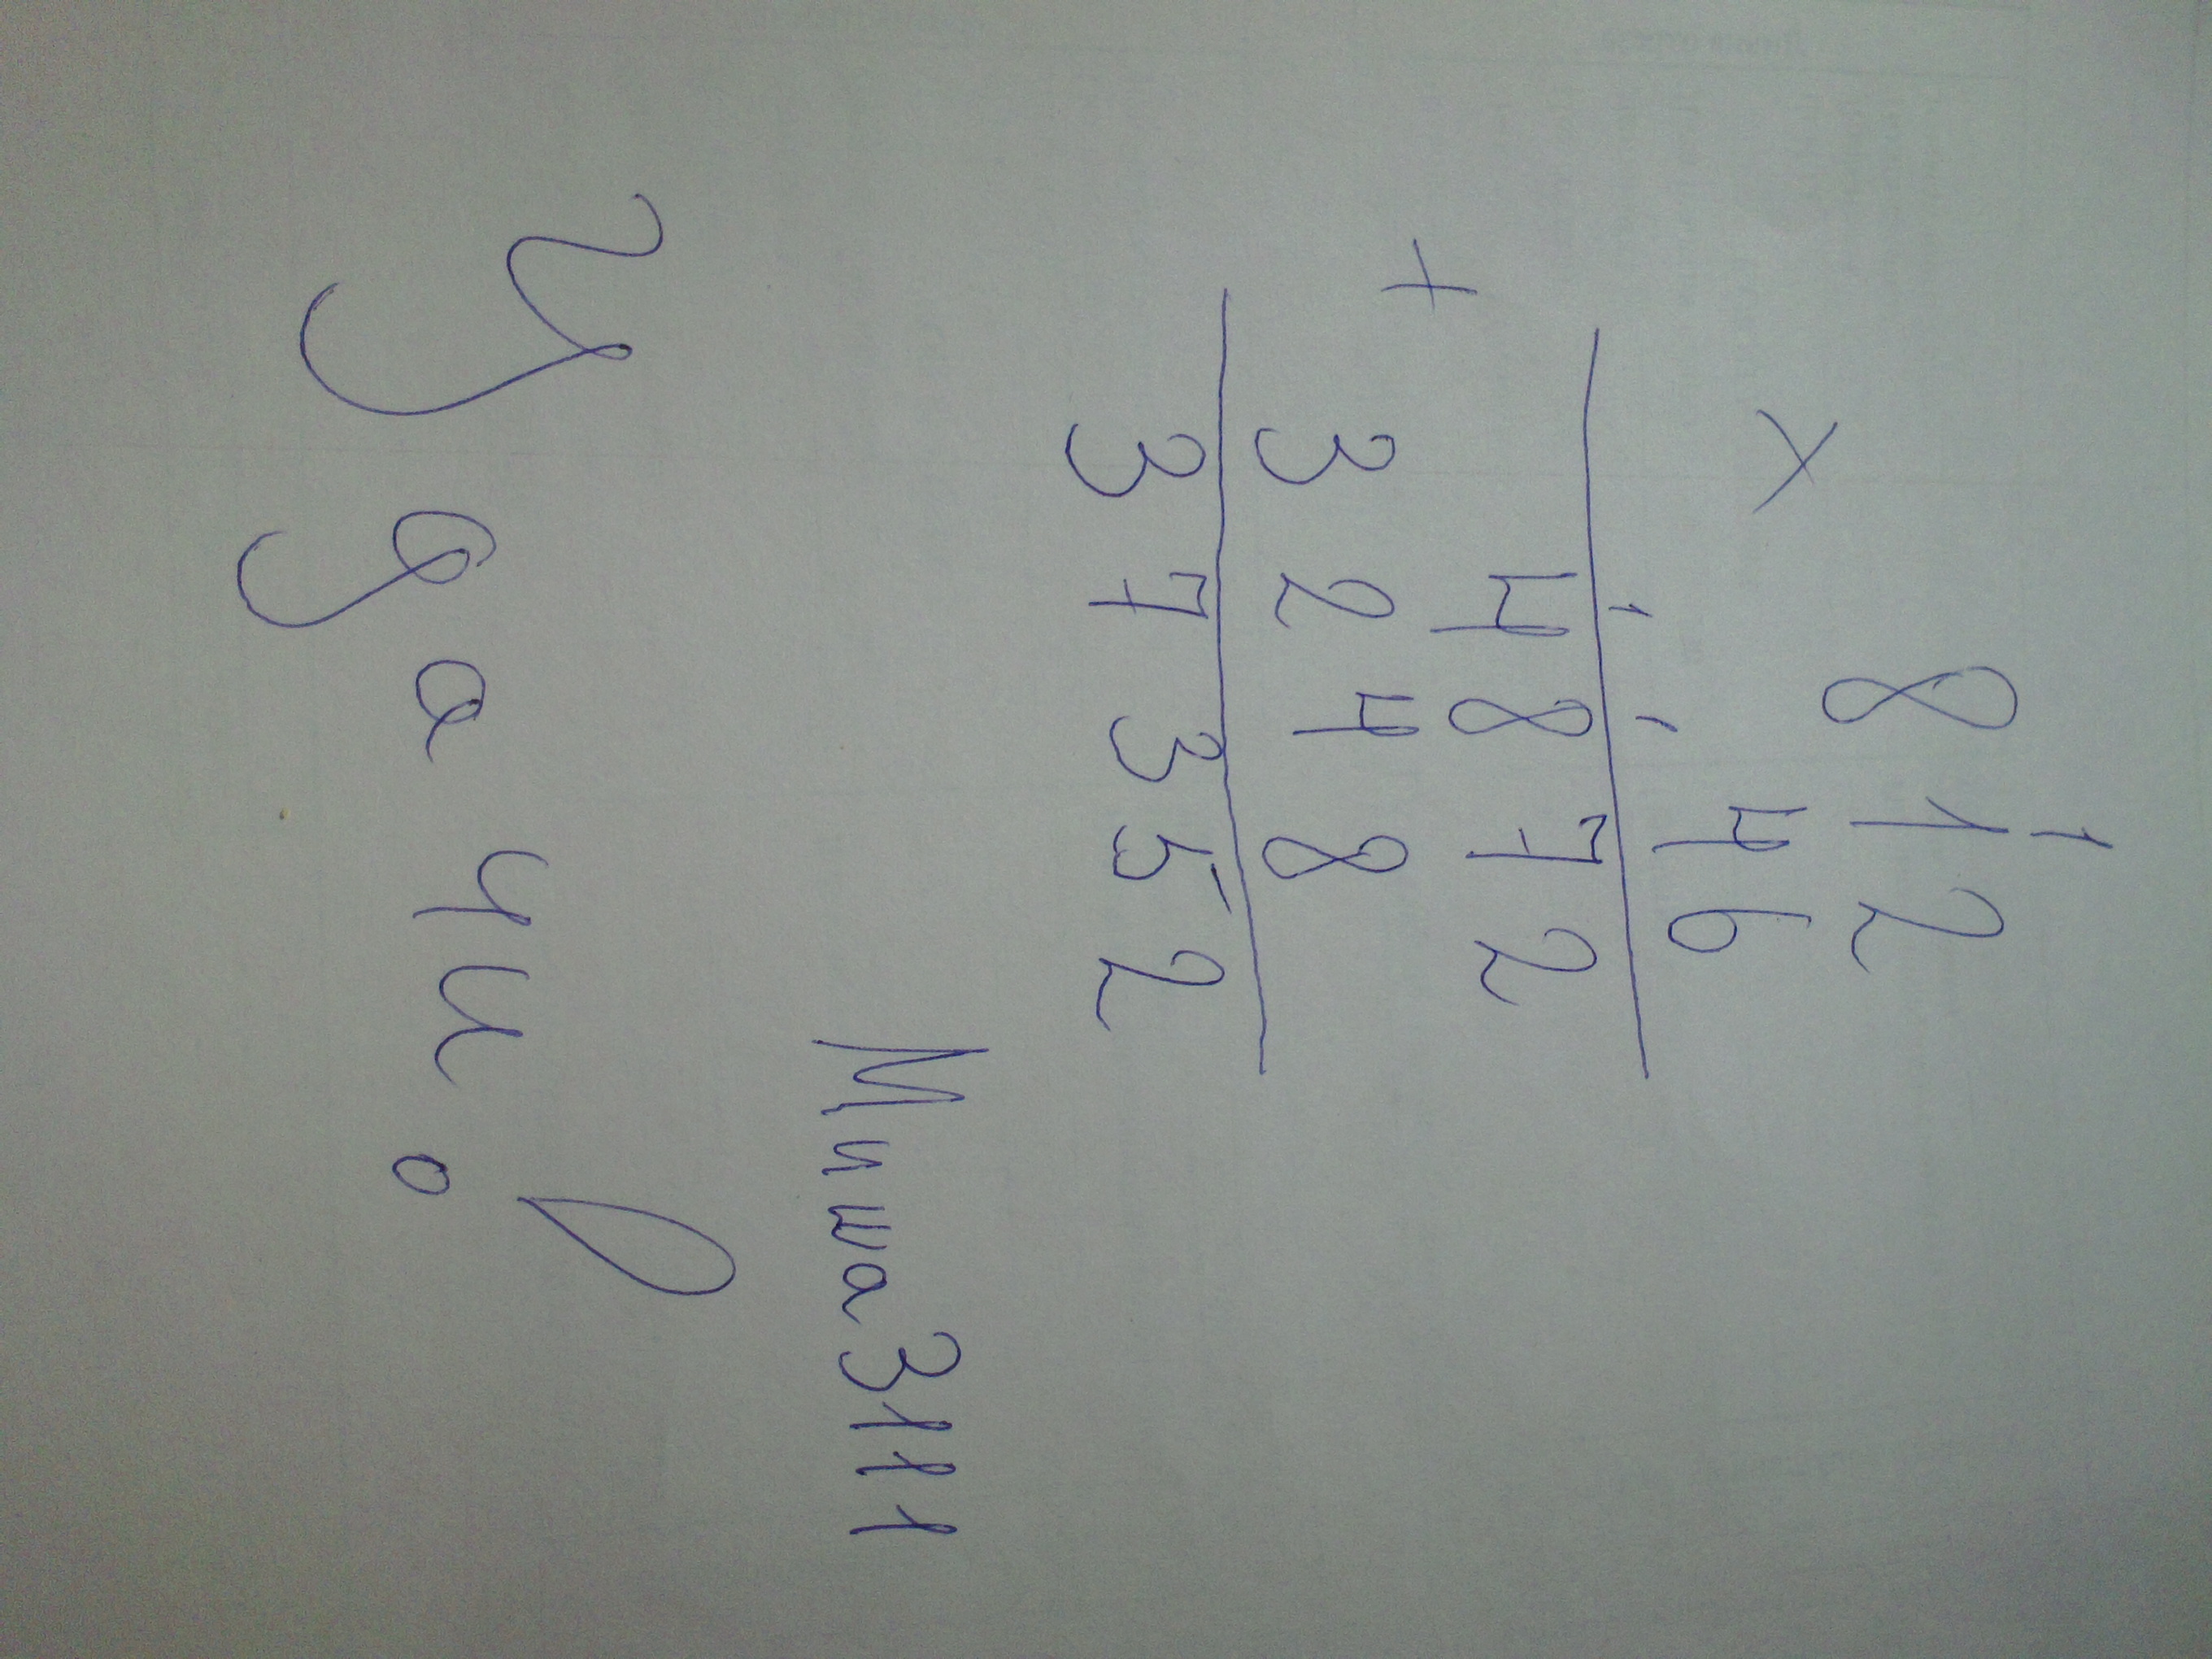 1
8 1 2
×
4 6
1 1
4 8 7 2
+
3 2 4 8
3 7 3 5 2
Миша3111
Удачи!